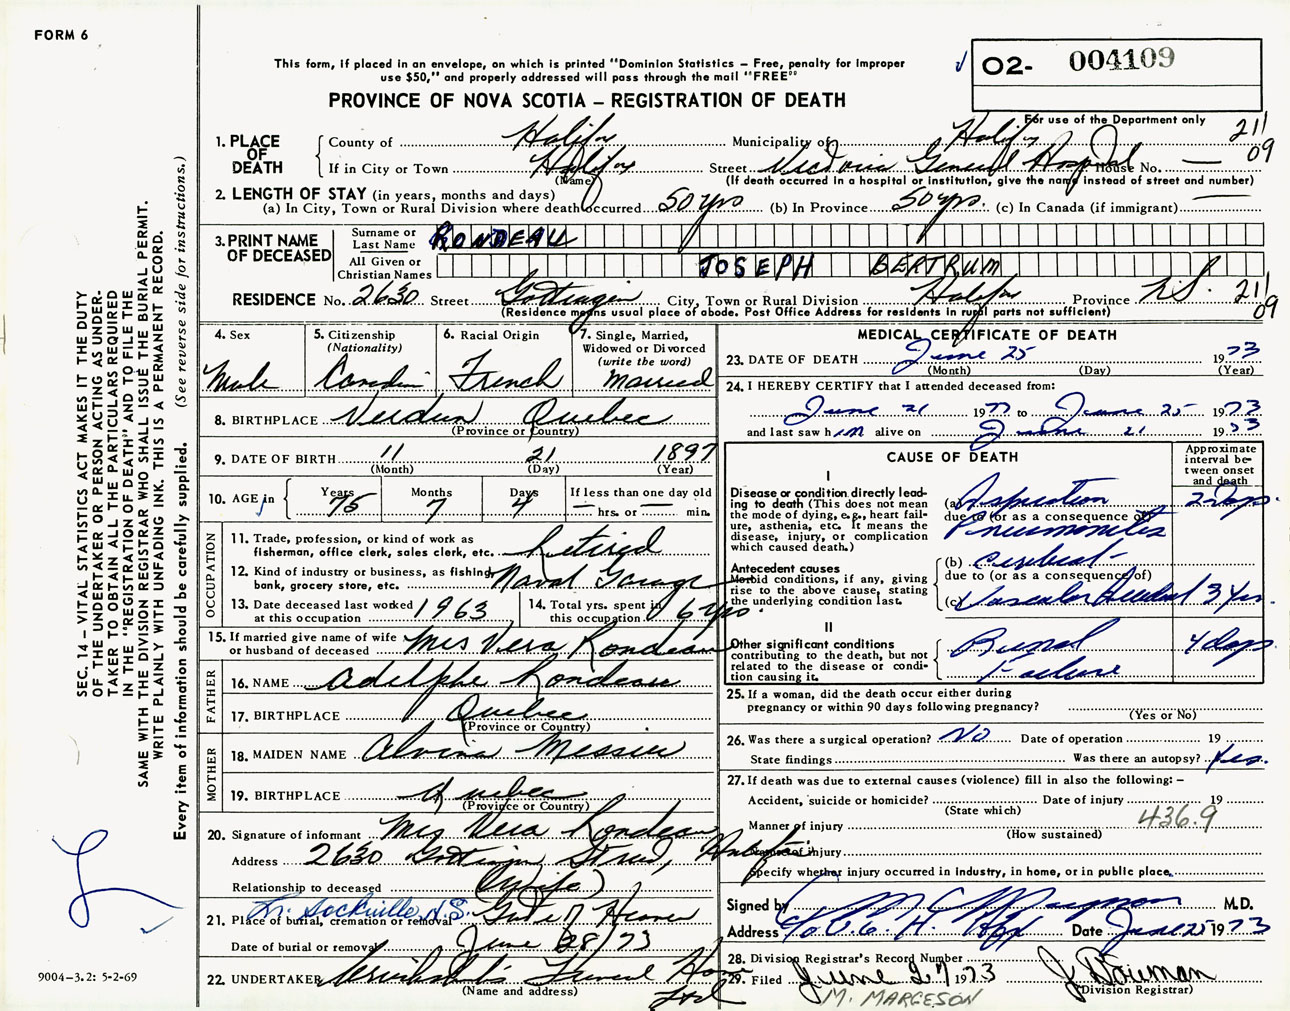 FORM 6
This form, if placed in an envelope, on which is printed "Dominion Statistics – Free, penalty for improper
use $50," and properly addressed will pass through the mail "FREE"
PROVINCE OF NOVA SCOTIA – REGISTRATION OF DEATH
O2- 004109
For use of the Department only
211
09
1. PLACE OF DEATH
County of Halifax Municipality of Halifax
If in City or Town Halifax Street Victoria General Hospital House No. —
(Name) (If death occurred in a hospital or institution, give the name instead of street and number)
2. LENGTH OF STAY (in years, months and days)
(a) In City, Town or Rural Division where death occurred 50 yrs (b) In Province 50 yrs. (c) In Canada (if immigrant) —
3. PRINT NAME OF DECEASED
Surname or Last Name RONDEAU
All Given or Christian Names JOSEPH BERTRUM
RESIDENCE No. 2630 Street Gottingen City, Town or Rural Division Halifax Province N.S. 211
09
(Residence means usual place of abode. Post Office Address for residents in rural parts not sufficient)
4. Sex
Male
5. Citizenship (Nationality)
Canadian
6. Racial Origin
French
7. Single, Married, Widowed or Divorced (write the word)
Married
8. BIRTHPLACE Verdun Quebec
(Province or Country)
9. DATE OF BIRTH 11 21 1897
(Month) (Day) (Year)
10. AGE in Years 75 Months 7 Days 4 If less than one day old
— hrs. or — min.
OCCUPATION
11. Trade, profession, or kind of work as
fisherman, office clerk, sales clerk, etc. Retired
12. Kind of industry or business, as fishing,
bank, grocery store, etc. Naval Garage
13. Date deceased last worked at this occupation 1963
14. Total yrs. spent in this occupation 6 yrs.
15. If married give name of wife or husband of deceased Mrs Vera Rondeau
FATHER
16. NAME Adelphe Rondeau
17. BIRTHPLACE Quebec
(Province or Country)
MOTHER
18. MAIDEN NAME Alvina Messier
19. BIRTHPLACE Quebec
(Province or Country)
20. Signature of informant Mrs Vera Rondeau
Address 2630 Gottingen Street, Halifax
Relationship to deceased (Wife)
21. Place of burial, cremation or removal Gate of Heaven Lr. Sackville N.S.
Date of burial or removal June 28/73
22. UNDERTAKER Funeral Home
Ltd
(Name and address)
MEDICAL CERTIFICATE OF DEATH
23. DATE OF DEATH June 25 1973
(Month) (Day) (Year)
24. I HEREBY CERTIFY that I attended deceased from:
June 21 1977 to June 25 1973
and last saw him alive on June 21 1973
CAUSE OF DEATH
Approximate interval between onset and death
I
Disease or condition directly leading to death (This does not mean the mode of dying, e.g., heart failure, asthenia, etc. It means the disease, injury, or complication which caused death.)
(a) Aspiration 2 days.
due to (or as a consequence of)
Pneumonitis
Antecedent causes
Morbid conditions, if any, giving rise to the above cause, stating the underlying condition last.
(b) cerebral-
due to (or as a consequence of)
(c) Vascular Accident 3 yrs.
II
Other significant conditions contributing to the death, but not related to the disease or condition causing it.
Renal 4 days
Failure
25. If a woman, did the death occur either during
pregnancy or within 90 days following pregnancy?
(Yes or No)
26. Was there a surgical operation? No Date of operation 19
State findings Was there an autopsy? Yes.
27. If death was due to external causes (violence) fill in also the following: –
Accident, suicide or homicide? Date of injury 19
(State which)
Manner of injury 436.9
(How sustained)
Nature of injury
Specify whether injury occurred in industry, in home, or in public place.
Signed by M.D.
Address Date June 25 1973
28. Division Registrar's Record Number
29. Filed June 27 1973 J Bowman
(Division Registrar)
M. MARGESON
SEC. 14 – VITAL STATISTICS ACT MAKES IT THE DUTY
OF THE UNDERTAKER OR PERSON ACTING AS UNDER-
TAKER TO OBTAIN ALL THE PARTICULARS REQUIRED
IN THE "REGISTRATION OF DEATH" AND TO FILE THE
SAME WITH THE DIVISION REGISTRAR WHO SHALL ISSUE THE BURIAL PERMIT.
WRITE PLAINLY WITH UNFADING INK. THIS IS A PERMANENT RECORD.
Every item of information should be carefully supplied. (See reverse side for instructions.)
9004-3.2: 5-2-69